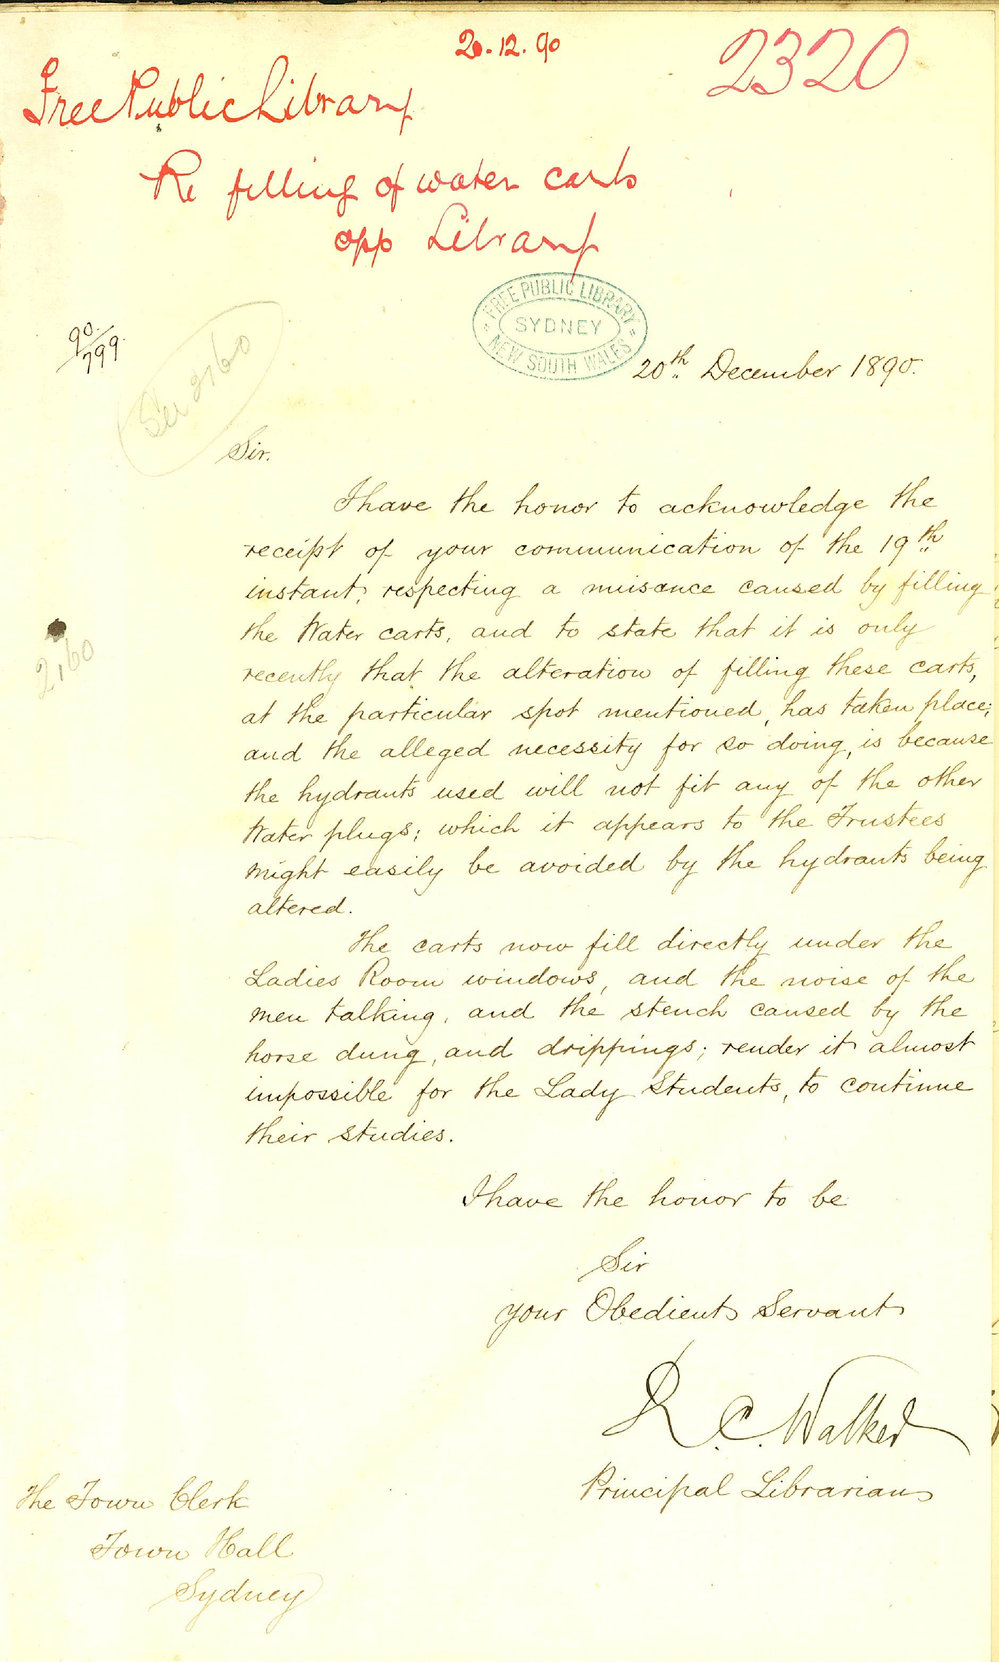 20.12.90
2320
Free Public Library
Re filling of water carts
opp Library
FREE PUBLIC LIBRARY
SYDNEY
NEW SOUTH WALES
90/799
See 2160
20th December 1890.
Sir.
I have the honor to acknowledge the
receipt of your communication of the 19th
instant, respecting a nuisance caused by filling
the Water carts, and to state that it is only
recently that the alteration of filling these carts,
at the particular spot mentioned, has taken place;
and the alleged necessity for so doing, is because
the hydrants used will not fit any of the other
Water plugs; which it appears to the Trustees
might easily be avoided by the hydrants being
altered.
The carts now fill directly under the
Ladies Room windows, and the noise of the
men talking, and the stench caused by the
horse dung, and drippings; render it almost
impossible for the Lady Students, to continue
their studies.
2160
I have the honor to be
Sir
your Obedient Servant
R. C. Walker
Principal Librarian
The Town Clerk
Town Hall
Sydney